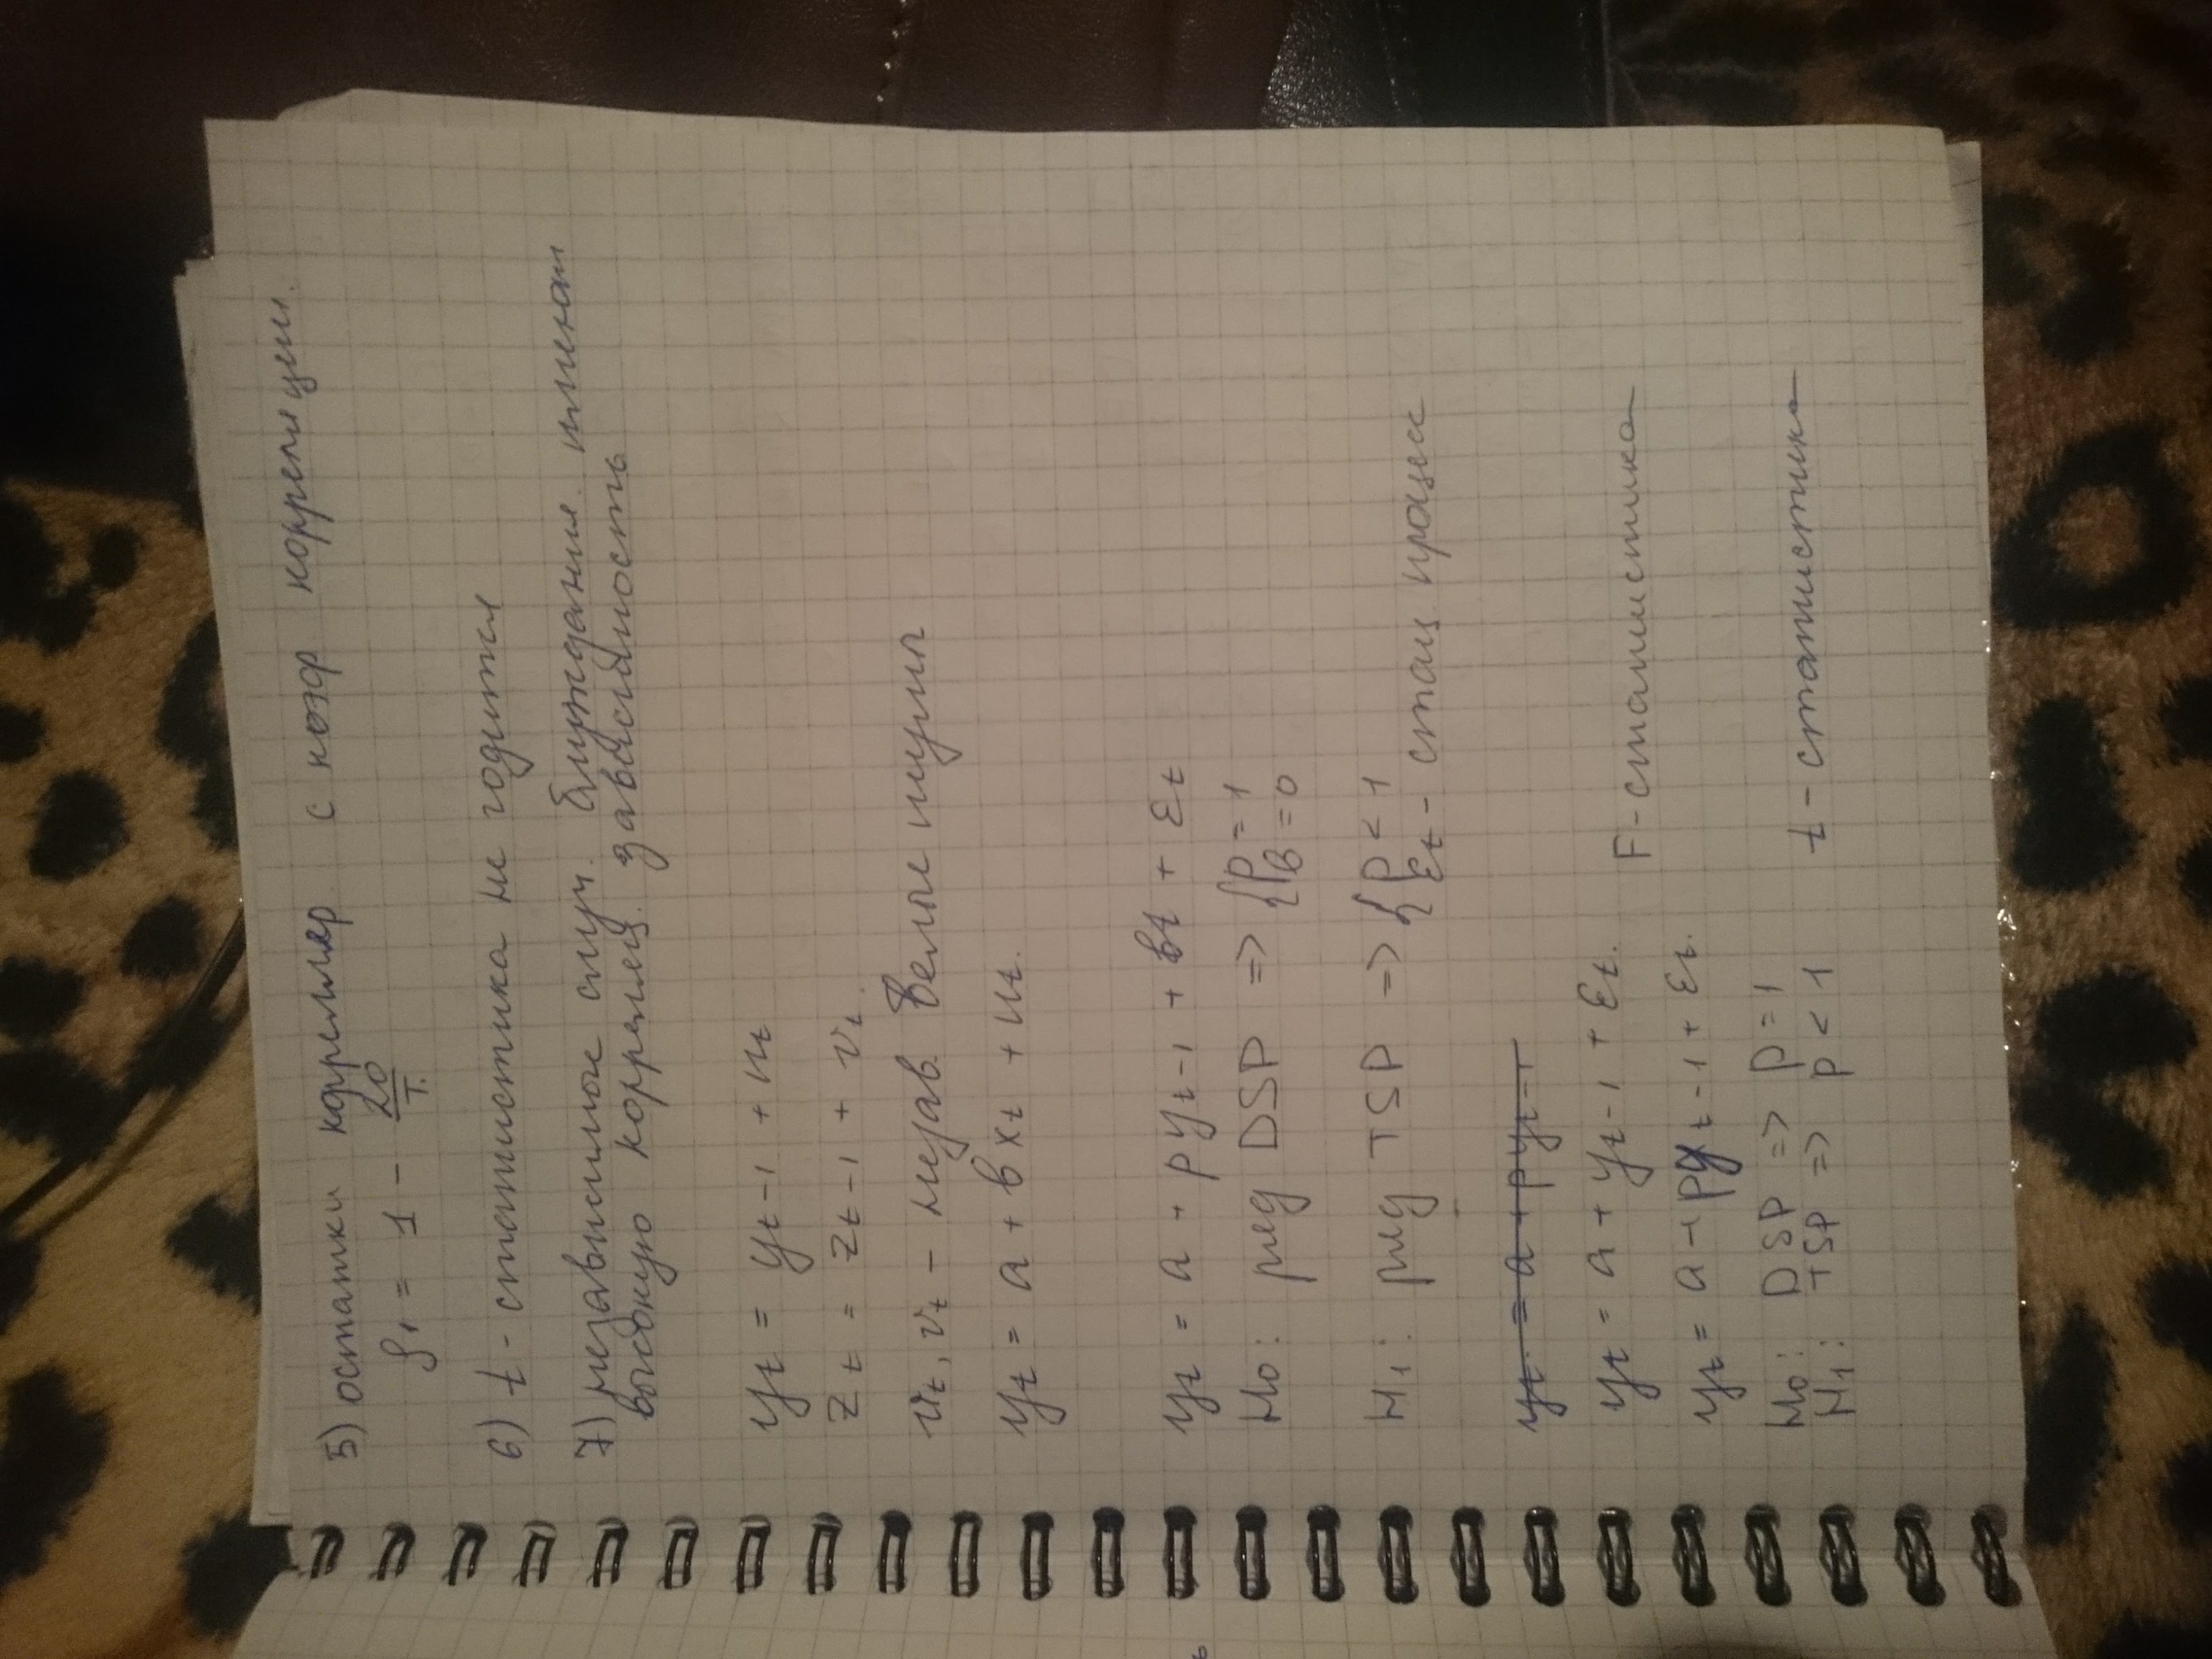 5) остатки коррелир с коэф корреляции.
ρ₁ = 1 - 20/T.
6) t - статистика не годится
7) независимые случ. блуждания имеют
высокую коррелец. зависимость
yt = yt-1 + ut
zt = zt-1 + vt.
ut, vt - незав. белые шумы
yt = a + bxt + ut.
yt = a + pyt-1 + bt + εt
H0: ряд DSP => {p = 1
b = 0
H1: ряд TSP => {p < 1
εt - стац. процесс
yt = a + pyt-1
yt = a + yt-1 + εt. F-статистика
yt = a + pyt-1 + εt.
H0: DSP => p = 1
H1: TSP => p < 1 t - статистика